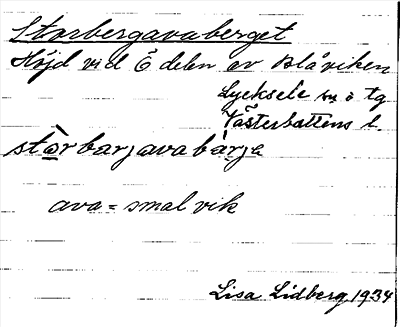 Storbergavaberget
Höjd vid Ö delen av Blåviken
Lycksele sn o tg
Västerbottens l.
stòrbarjavabàrje
ava = smal vik
Lisa Lidberg 1934